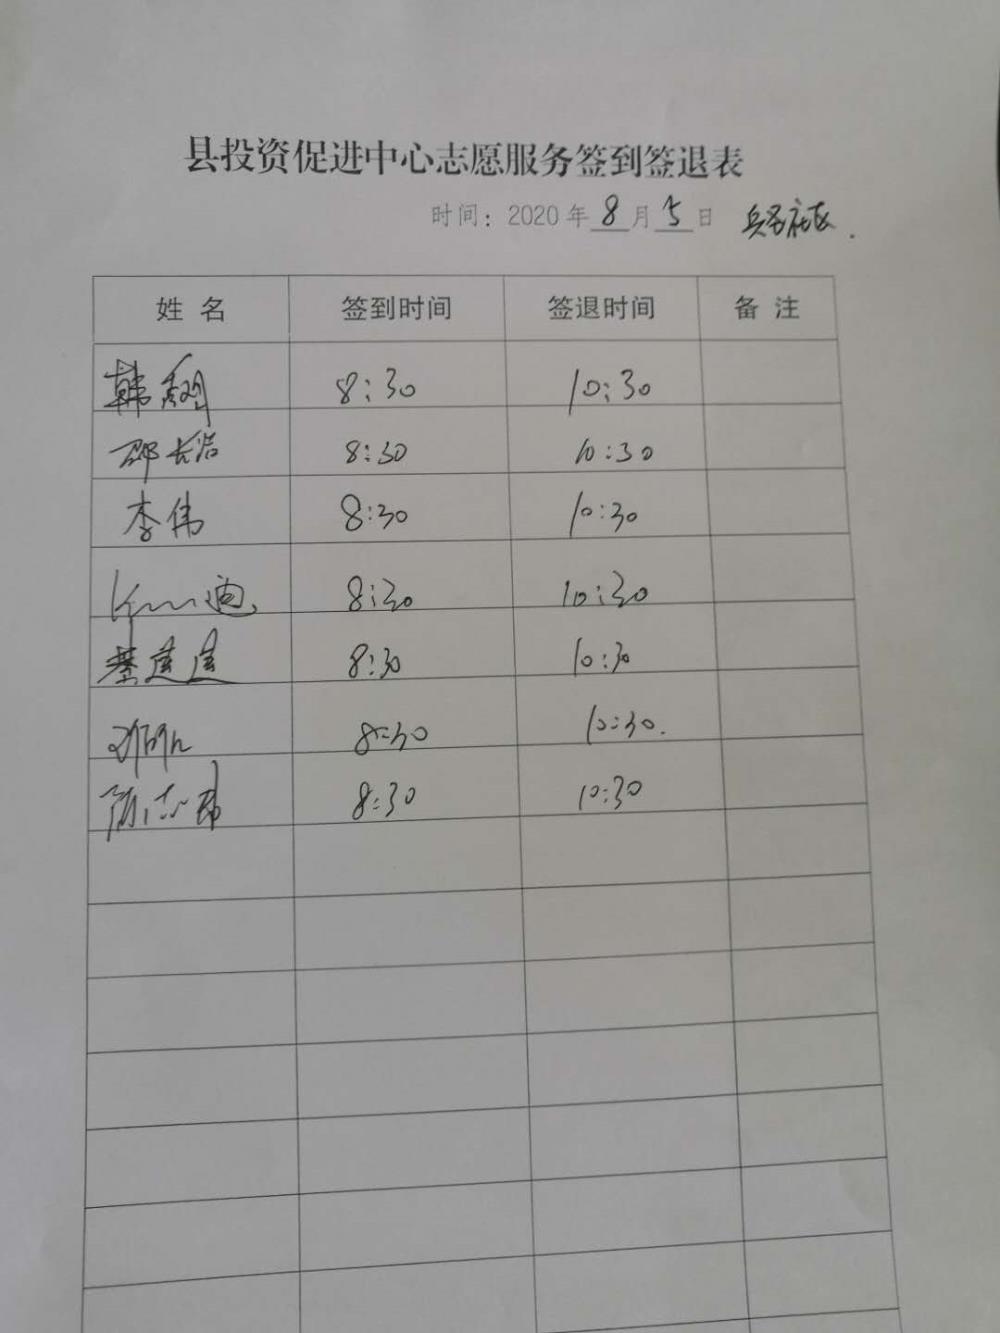 县投资促进中心志愿服务签到签退表
时间：2020年8月5日
姓名 签到时间 签退时间 备注
韩 8:30 10:30
邵长浩 8:30 10:30
李伟 8:30 10:30
迪 8:30 10:30
綦连连 8:30 10:30
8:30 10:30.
陈志 8:30 10:30